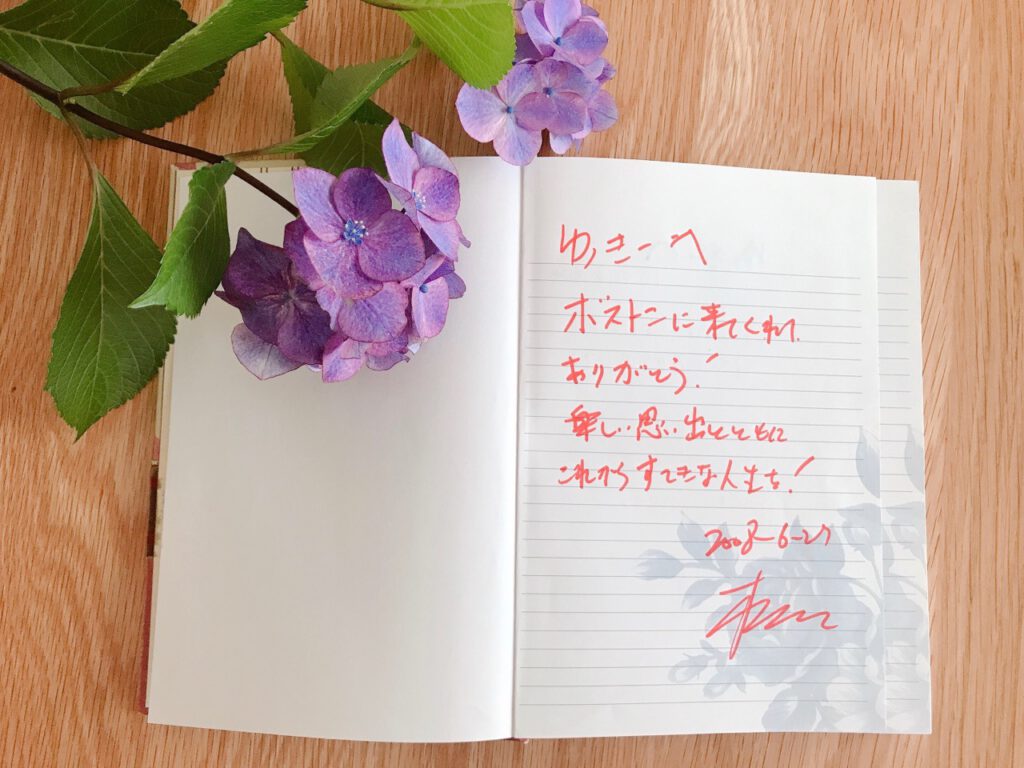 ゆっきーへ
ボストンに来てくれて
ありがとう!
楽しい思い出とともに
これからすてきな人生を!
2008-6-27